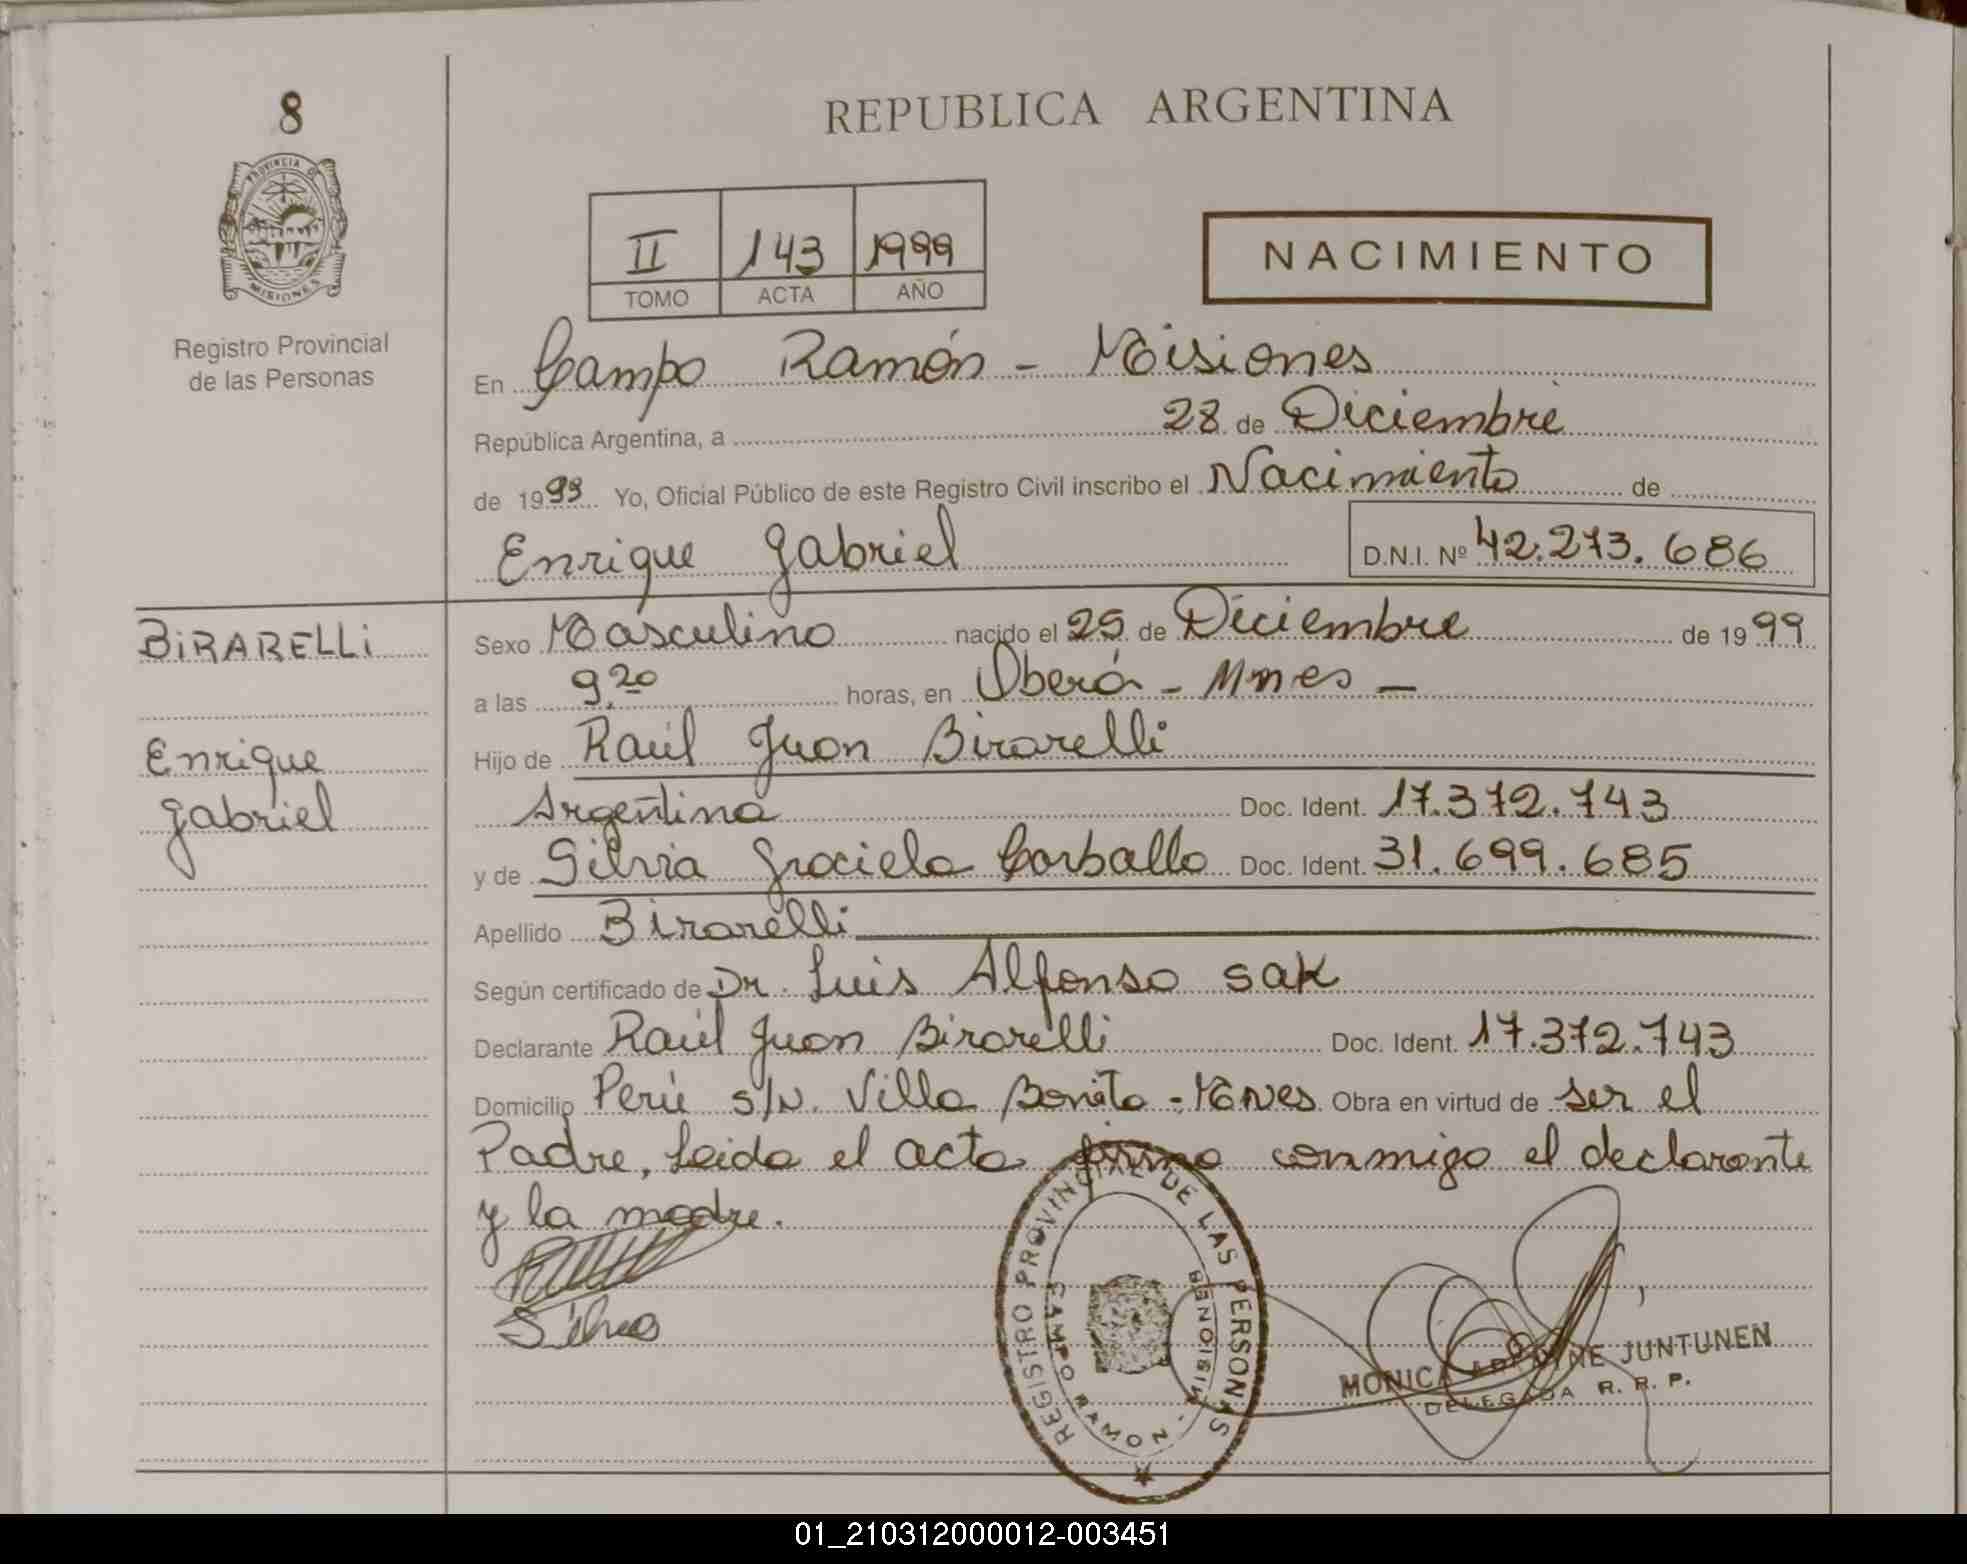 8
REPUBLICA ARGENTINA
PROVINCIA DE
MISIONES
Registro Provincial
de las Personas
II 143 1999
TOMO ACTA AÑO
NACIMIENTO
En Campo Ramón - Misiones
República Argentina, a 28 de Diciembre
de 1999 Yo, Oficial Público de este Registro Civil inscribo el Nacimiento de
Enrique Gabriel D.N.I. Nº 42.273.686
BIRARELLI
Enrique
Gabriel
Sexo Masculino nacido el 25 de Diciembre de 1999
a las 9,20 horas, en Oberá - Mnes -
Hijo de Raúl Juan Birarelli
Argentina Doc. Ident. 17.372.743
y de Silvia Graciela Carballo Doc. Ident. 31.699.685
Apellido Birarelli
Según certificado de Dr. Luis Alfonso Sak
Declarante Raúl Juan Birarelli Doc. Ident. 17.372.743
Domicilio Perú s/N. Villa Bonita - Mnes Obra en virtud de ser el
Padre, Leída el acta firma conmigo el declarante
y la madre.
Silvia
REGISTRO PROVINCIAL DE LAS PERSONAS
CAMPO RAMON - MISIONES
MONICA JUNTUNEN
DELEGADA R. R. P.
01_210312000012-003451